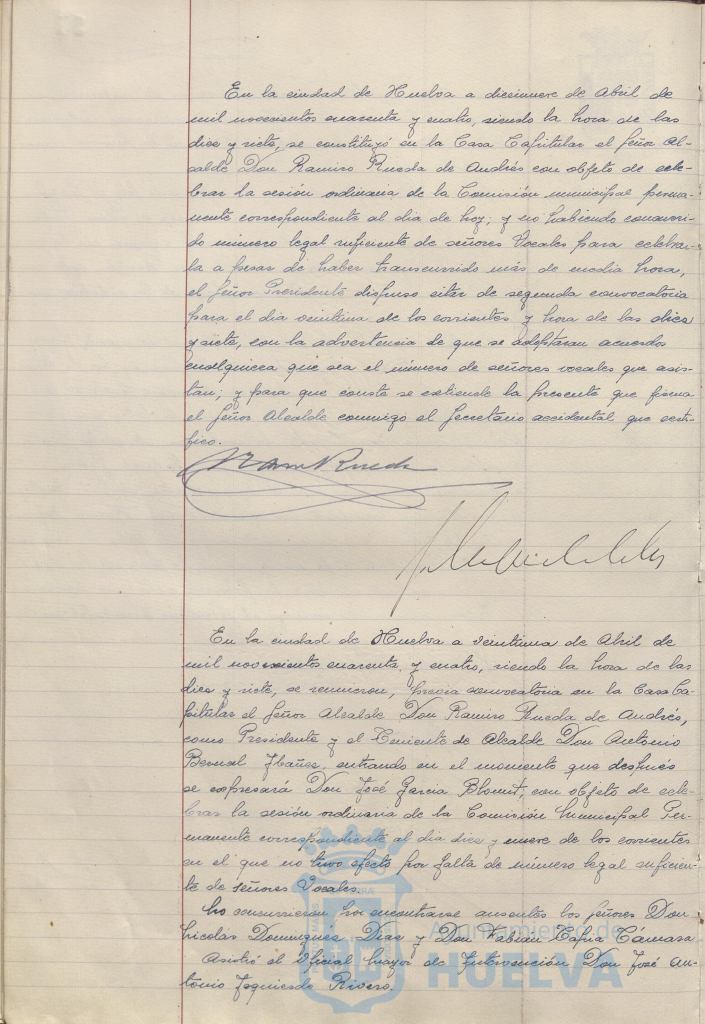 En la ciudad de Huelva a diecinueve de Abril de
mil novecientos cuarenta y cuatro, siendo la hora de las
diez y siete, se constituyó en la Casa Capitular el Señor Al-
calde Don Ramiro Rueda de Andrés con objeto de cele-
brar la sesión ordinaria de la Comisión municipal perma-
nente correspondiente al dia de hoy; y no habiendo concurri-
do número legal suficiente de señores Vocales para celebrar-
la a pesar de haber transcurrido más de media hora,
el Señor Presidente dispuso citar de segunda convocatoria
para el dia veintiuna de los corrientes y hora de las diez
y siete, con la advertencia de que se adoptaran acuerdos
cualquiera que sea el número de señores vocales que asis-
tan; y para que conste se extiende la presente que firma
el Señor Alcalde conmigo el Secretario accidental que certi-
fico.
Ram Rueda
En la ciudad de Huelva a veintiuna de Abril de
mil novecientos cuarenta y cuatro, siendo la hora de las
diez y siete, se reunieron, previa convocatoria en la Casa Ca-
pitular el Señor Alcalde Don Ramiro Rueda de Andrés,
como Presidente y el Teniente de Alcalde Don Antonio
Bernal Ybañez, entrando en el momento que después
se expresará Don José Garcia, con objeto de cele-
brar la sesión ordinaria de la Comisión Municipal Per-
manente correspondiente al dia diez y nueve de los corrientes
en el que no tuvo efecto por falta de número legal suficien-
te de Señores Vocales.
No concurrieron por encontrarse ausentes los Señores Don
Nicolas Dominguez Diaz y Don Fabian Tapia Cámara
Asistió el Oficial Mayor de Intervención Don José An-
tonio Izquierdo Rivero.
Ayuntamiento de
HUELVA